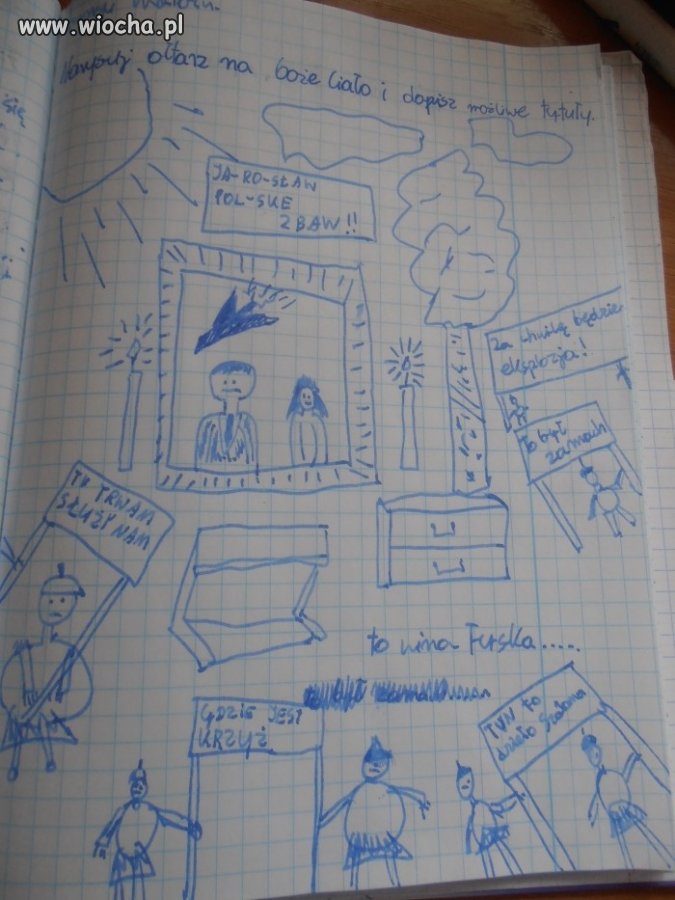 www.wiocha.pl
Narysuj ołtarz na boże Ciało i dopisz możliwe tytuły.
się
JA-RO-SŁAW
POL-SKE
ZBAW!!
Za chwilę będzie
eksplozja!
To był
zamach
TV TRWAM
SŁUŻY NAM
to wina Tuska.....
GDZIE JEST
KRZYŻ
TVN to
dzieło szatana